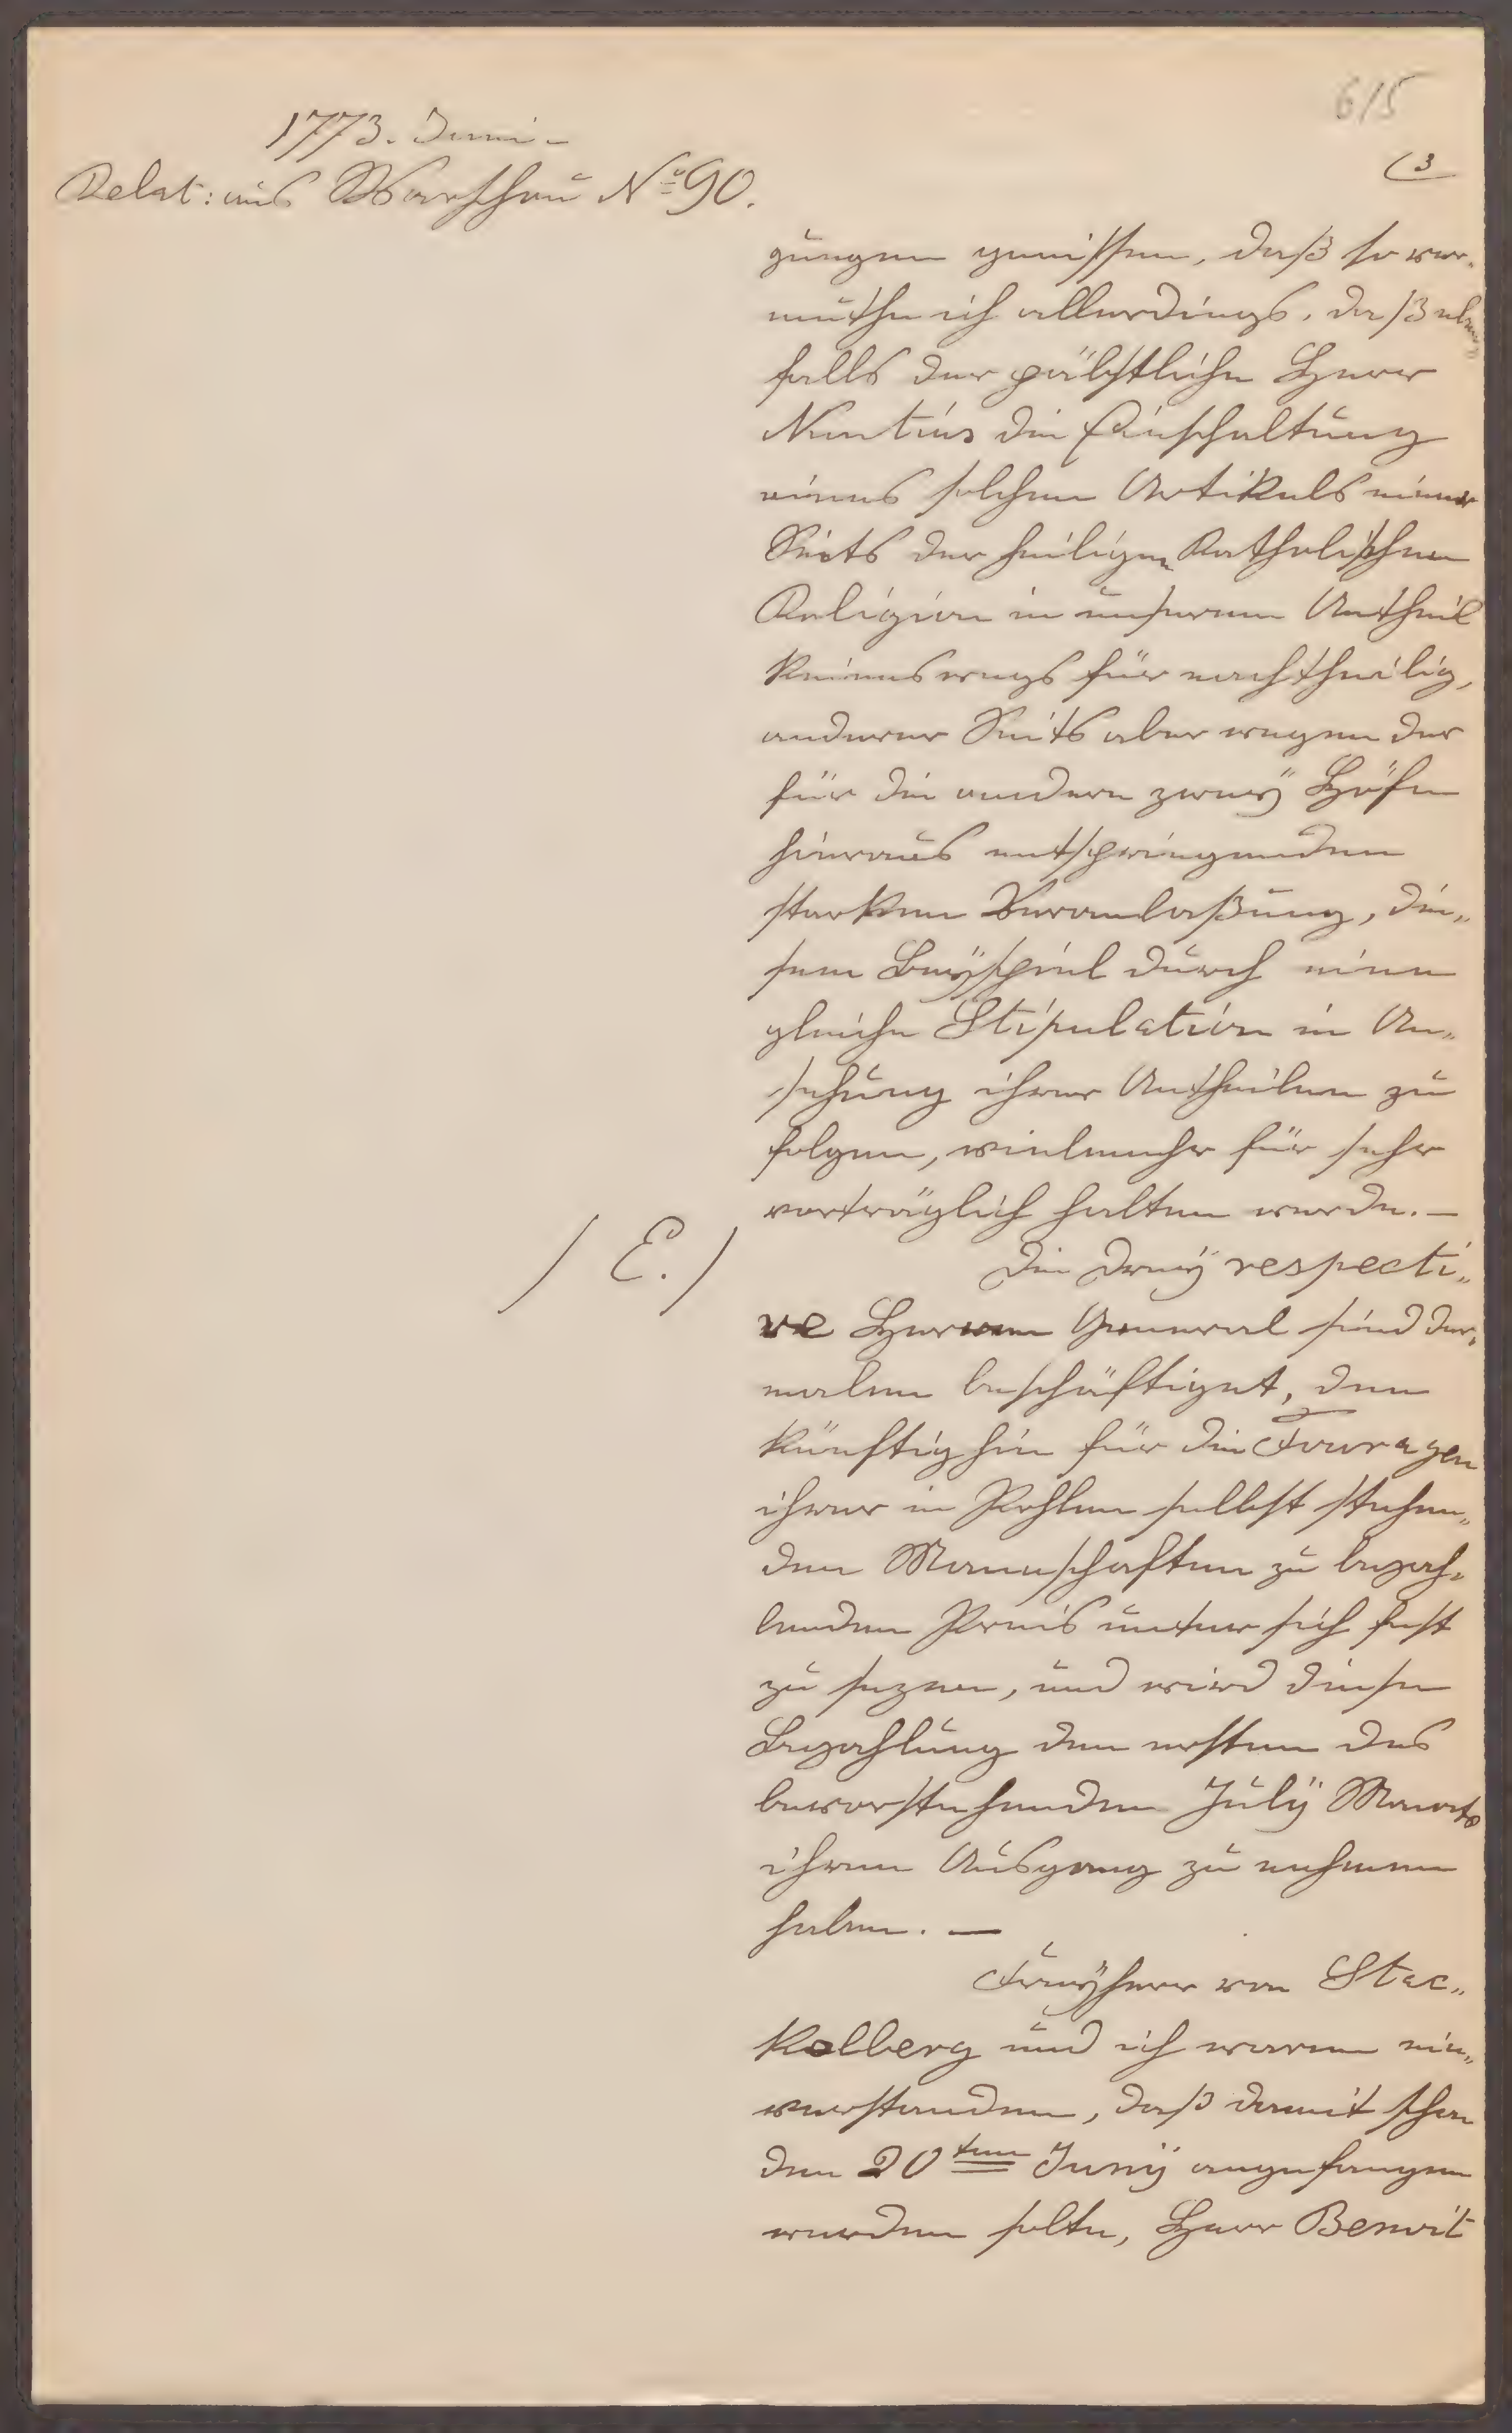 615
1773. Juni -
(3
Relat: aus Warschau No 90.
gungen genissen, daß so ver-
muthe ich allerdings, daß eben
falls der päbstliche Herr
Nuntius die Einschaltung
eines solchen Artikuls einer
Seits der heiligen Katholischen
Religion in unserem Antheil
keineswegs für nachtheilig,
anderer Seits aber wegen der
für die andern zweÿ Höfe
hieraus entspringenden
starken Veranlaßung, die„
sem Beÿspiel durch eine
gleiche Stipulation in An„
sehung ihrer Antheilen zu
folgen, vielmehr für sehr
vorträglich halten werde. —
/ E. /
Die dreÿ respecti„
ve Herren General sind der„
malen beschäftiget, den
künftighin für die Fouragen
ihrer in Pohlen selbst stehen„
den Mannschaften zu bezah„
lenden Preis unter sich fest
zu sezen, und wird diese
Bezahlung den ersten des
bevorstehenden Julÿ Monats
ihren Ausgang zu nehmen
haben. —
Freÿherr von Stac„
kelberg und ich waren ein„
verstanden, daß damit schon
den 20ten Junÿ angefangen
werden solte, Herr Benoit